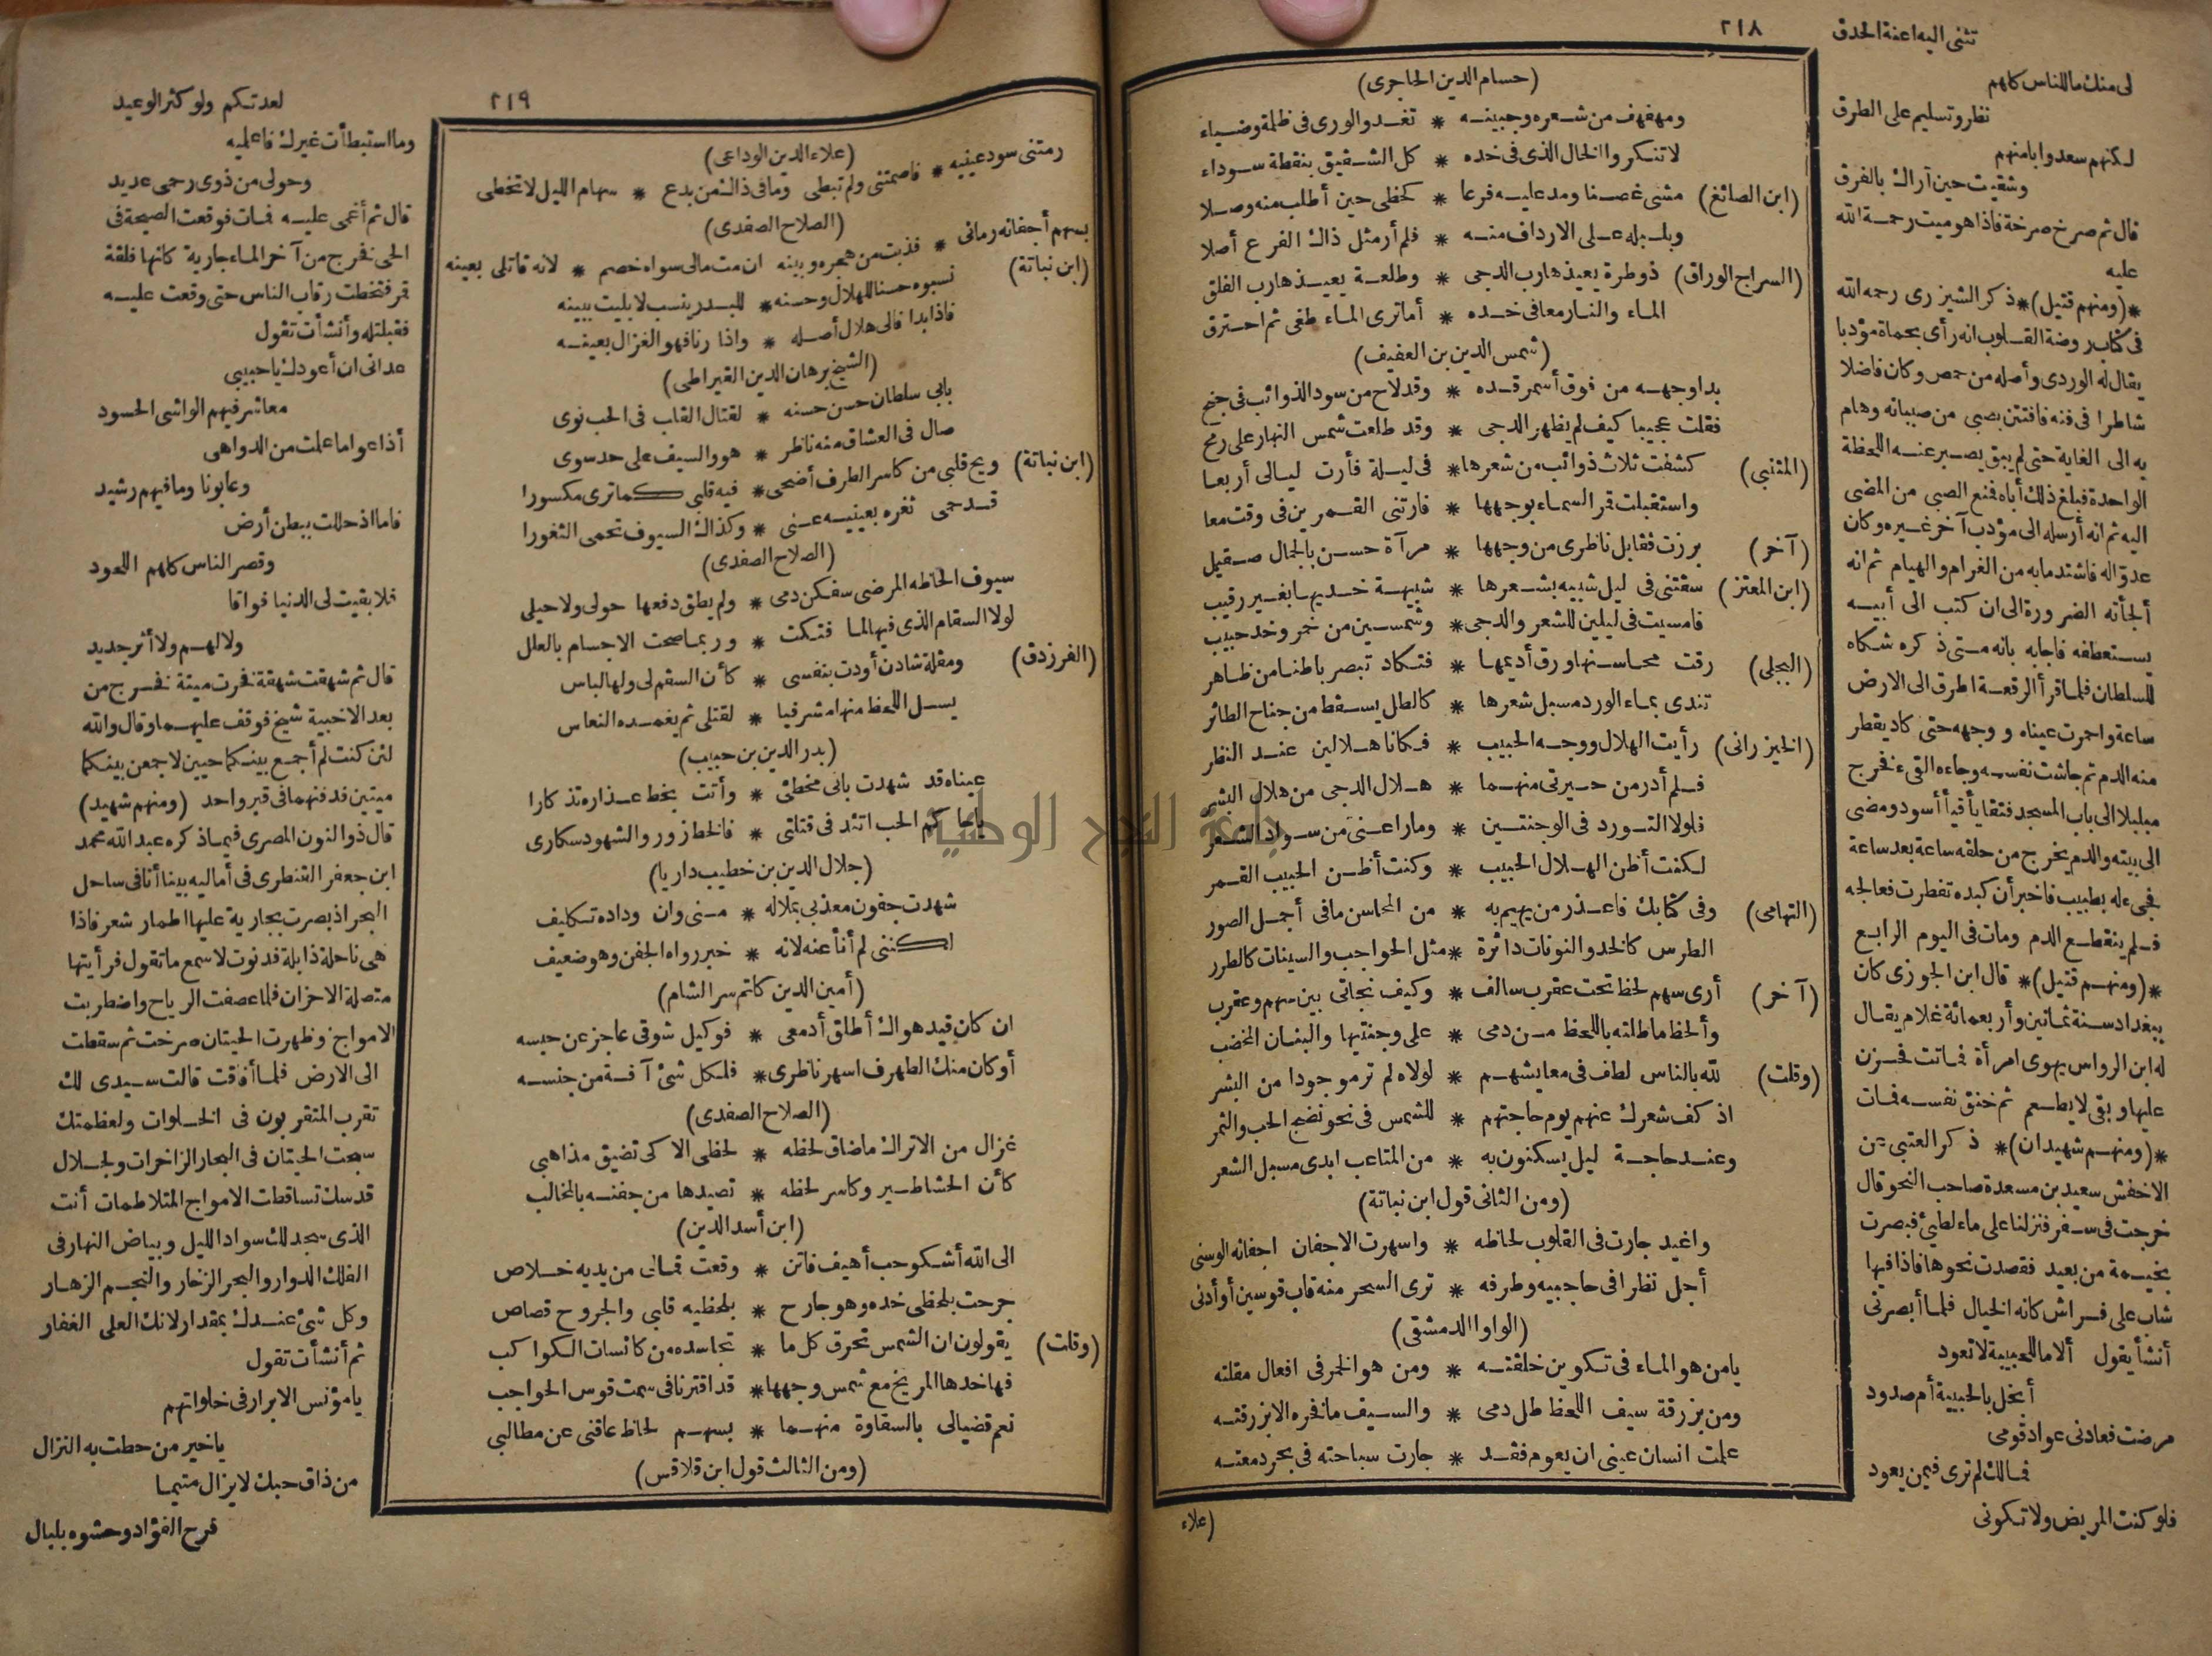 ٢١٨
(حسام الدين الحاجرى)
ومهفهف من شعره وجبينه * تغدو الورى فى ظلمة وضياء
لا تنكروا الخال الذى فى خده * كل الشقيق بنقطة سوداء
(ابن الصائغ) مشى غصنا ومد عليه فرعا * كحظى حين أطلب منه وصلا
وبلبله على الارداف منه * فلم أر مثل ذاك الفرع أصلا
(السراج الوراق) ذو طرة يعيذ هارب الدجى * وطلعة يعيذ هارب الفلق
الماء والنار معا فى خده * أما ترى الماء طفى ثم احترق
(شمس الدين بن العفيف)
بدا وجهه من فوق أسمر قده * وقد لاح من سود الذوائب فى جنح
فقلت عجيبا كيف لم يظهر الدجى * وقد طلعت شمس النهار على رمح
(المتنبى) كشفت ثلاث ذوائب من شعرها * فى ليلة فأرت ليالى أربعا
واستقبلت قمر السماء بوجهها * فارتنى القمرين فى وقت معا
(آخر) برزت فقابل ناظرى من وجهها * مرآة حسن بالجمال صقيل
(ابن المعتز) سقتنى فى ليل شبيه بشعرها * شبيهة خديها بغير رقيب
فامسيت فى ليلين للشعر والدجى * وشمسين من خمر وخد حبيب
(البجلى) رقت محاسنها ورق أديمها * فتكاد تبصر باطنا من ظاهر
تندى بماء الورد مسبل شعرها * كالطل يسقط من جناح الطائر
(الخيزرانى) رأيت الهلال ووجه الحبيب * فكانا هلالين عند النظر
فلم أدر من حيرتى منهما * هلال الدجى من هلال البشر
فلولا التورد فى الوجنتين * وما راعنى من سواد الشعر
لكنت أظن الهلال الحبيب * وكنت أظن الحبيب القمر
(التهامى) وفى كتابك فاعذر من يهيم به * من المحاسن ما فى أجمل الصور
الطرس كالخد والنونات دائرة * مثل الحواجب والسينات كالطرر
(آخر) أرى سهم لحظ تحت عقرب سالف * وكيف نجاتى بين سهم وعقرب
وألحظ ما طلته باللحظ من دمى * على وجنتيها والبنان المخضب
(وقلت) لله بالناس لطف فى معايشهم * لولاه لم تر موجودا من البشر
اذ كف شعرك عنهم يوم حاجتهم * للشمس فى نحو نضج الحب والثمر
وعند حاجة ليل يسكنون به * من المتاعب ابدى مسبل الشعر
(ومن الثانى قول ابن نباتة)
واغيد جارت فى القلوب لحاظه * واسهرت الاجفان اجفانه الوسنى
أجل نظرا فى حاجبيه وطرفه * ترى السحر منه قاب قوسين أو أدنى
(الواوا الدمشقى)
يا من هو الماء فى تكوين خلقته * ومن هو الخمر فى افعال مقلته
ومن بزرقة سيف اللحظ طل دمى * والسيف ما فخره الا بزرقته
علمت انسان عينى ان يعوم فقد * جارت سباحته فى بحر دمعته
(علاء
تثنى اليه اعنة الحدق
لى منك ما للناس كلهم
نظر وتسليم على الطرق
لكنهم سعدوا بامنهم
وشقيت حين أراك بالفرق
قال ثم صرخ صرخة فاذا هو ميت رحمة الله
عليه
*(ومنهم قتيل)* ذكر الشيزرى رحمه الله
فى كتاب روضة القلوب انه رأى بحماة مؤدبا
يقال له الوردى وأصله من حمص وكان فاضلا
شاطرا فى فنه فافتتن بصبى من صبيانه وهام
به الى الغاية حتى لم يبق يصبر عنه اللحظة
الواحدة فبلغ ذلك أباه فمنع الصبى من المضى
اليه ثم انه أرسله الى مؤدب آخر غيره وكان
عدوّاله فاشتد ما به من الغرام والهيام ثم انه
ألجأته الضرورة الى ان كتب الى أبيه
يستعطفه فاجابه بانه متى ذكره شكاه
للسلطان فلما قرأ الرقعة اطرق الى الارض
ساعة واحمرت عيناه ووجهه حتى كاد يقطر
منه الدم ثم جاشت نفسه وجاءه القىء نخرج
مبلبلا الى باب المسجد فتقايأ قيأ أسود ومضى
الى بيته والدم يخرج من حلقه ساعة بعد ساعة
فجىء له بطبيب فاخبر أن كبده تفطرت فعالجه
فلم ينقطع الدم ومات فى اليوم الرابع
*(ومنهم قتيل)* قال ابن الجوزى كان
ببغداد سنة ثمانين وأربعمائة غلام يقال
له ابن الرواس يهوى امرأة فماتت فحزن
عليها وبقى لا يطعم ثم خنق نفسه فمات
*(ومنهم شهيدان)* ذكر العتبى عن
الاخفش سعيد بن مسعدة صاحب النحو قال
خرجت فى سفر فنزلنا على ماء لطيئ فبصرت
بخيمة من بعيد فقصدت نحوها فاذا فيها
شاب على فراش كانه الخيال فلما أبصرنى
أنشأ يقول ألا ما للحبيبة لا تعود
أبخل بالحبيبة أم صدود
مرضت فعادنى عواد قومى
فمالك لم ترى فيمن يعود
فلو كنت المريض ولا تكونى
٢١٩
(علاء الدين الوداعى)
رمتنى سود عينيه * فاصمتنى ولم تبطى وما فى ذاك من بدع * سهام الليل لا تخطى
(الصلاح الصفدى)
بسهم أجفانه رمانى * فذبت من هجره وبينه ان مت مالى سواه خصم * لانه قاتلى بعينه
(ابن نباتة) نسبوه حسنا للهلال وحسنه * للبدر ينسب لا بليت ببينه
فاذا بدا فالى هلال أصله * واذا رنا فهو الغزال بعينه
(الشيخ برهان الدين القيراطى)
بابى سلطان حسن حسنه * لقتال القلب فى الحب نوى
صال فى العشاق منه ناظر * هو والسيف على حد سوى
(ابن نباتة) ويح قلبى من كاسر الطرف أضحى * فيه قلبى كما ترى مكسورا
قد حمى ثغره بعينيه عنى * وكذاك السيوف تحمى الثغورا
(الصلاح الصفدى)
سيوف الحاظه المرضى سفكن دمى * ولم يطق دفعها حولى ولا حيلى
لولا السقام الذى فيها لما فتكت * وربما صحت الاجسام بالعلل
(الفرزدق) ومقلة شادن أودت بنفسى * كأن السقم لى ولها لباس
يسل اللحظ منها مشرفيا * لقتلى ثم يغمده النعاس
(بدر الدين بن حبيب)
عيناه قد شهدت بانى مخطئ * وأتت بخط عذاره تذكارا
يا حاكم الحب اتئد فى قتلتى * فالخط زور والشهود سكارى
(جلال الدين بن خطيب داريا)
شهدت جفون معذبى بملاله * منى وان وداده تكليف
لكننى لم أنأ عنه لانه * خبر رواه الجفن وهو ضعيف
(أمين الدين كاتم سر الشام)
ان كان قيد هواك أطلق أدمعى * فوكيل شوقى عاجز عن حبسه
أو كان منك الطرف اسهر ناظرى * فلكل شئ آفة من جنسه
(الصلاح الصفدى)
غزال من الاتراك ما ضاق لحظه * لحظى الا كى تضيق مذاهبى
كأن الحشا طير وكاسر لحظه * تصيدها من جفنه بالمخالب
(ابن أسد الدين)
الى الله أشكو حب أهيف فاتن * وقعت فمالى من يديه خلاص
جرحت بلحظى خده وهو جارح * بلحظيه قلبى والجروح قصاص
(وقلت) يقولون ان الشمس تحرق كل ما * تجاسده من كانسات الكواكب
فها خدها المريخ مع شمس وجهها * قد اقترنا فى سمت قوس الحواجب
نعم قضيا لى بالسقاوة منهما * بسهم لحاظ عاقنى عن مطالبى
(ومن الثالث قول ابن قلاقس)
لعدتكم ولو كثر الوعيد
وما استبطأت غيرك فاعلميه
وحولى من ذوى رحمى عديد
قال ثم أغمى عليه فمات فوقعت الصيحة فى
الحى فخرج من آخر الماء جارية كانها فلقة
قمر فتخطت رقاب الناس حتى وقعت عليه
فقبلته وأنشأت تقول
عدانى ان أعودك يا حبيبى
معاشر فيهم الواشى الحسود
أذاعوا ما علمت من الدواهى
وعابونا وما فيهم رشيد
فاما اذ حللت ببطن أرض
وقصر الناس كلهم اللحود
فلا بقيت لى الدنيا فواقا
ولا لهم ولا أثر جديد
قال ثم شهقت شهقة فخرت ميتة فخرج من
بعد الاخبية شيخ فوقف عليهما وقال والله
لئن كنت لم أجمع بينكما حيين لاجمعن بينكما
ميتين فدفنهما فى قبر واحد (ومنهم شهيد)
قال ذو النون المصرى فيما ذكره عبد الله محمد
ابن جعفر القنطرى فى أماليه بينا أنا فى ساحل
البحر اذ بصرت بجارية عليها اطمار شعر فاذا
هى ناحلة ذابلة فدنوت لاسمع ما تقول فرأيتها
متصلة الاحزان فلما عصفت الرياح واضطربت
الامواج وظهرت الحيتان صرخت ثم سقطت
الى الارض فلما أفاقت قالت سيدى لك
تقرب المتقربون فى الخلوات ولعظمتك
سبحت الحيتان فى البحار الزاخرات ولجلال
قدسك تساقطت الامواج المتلاطمات أنت
الذى سجد لك سواد الليل وبياض النهار فى
الفلك الدوار والبحر الزخار والنجم الزهار
وكل شئ عندك بمقدار لانك العلى الغفار
ثم أنشأت تقول
يا مؤنس الابرار فى خلواتهم
يا خير من حطت به النزال
من ذاق حبك لا يزال متيما
فرح الفؤاد وحشوه بلبال
جامعة النجاح الوطنية